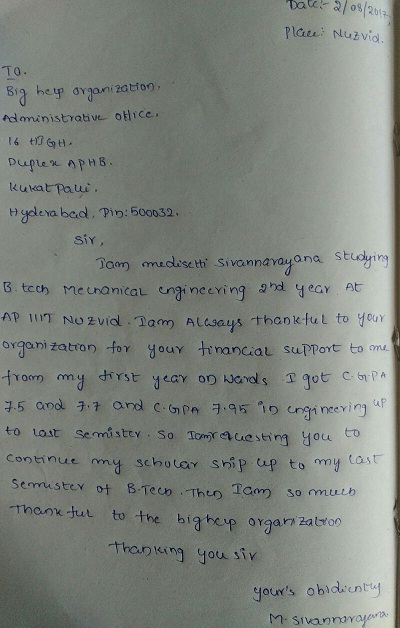 Date:- 2/08/2017,
Place: Nuzvid.
TO.
Big help organization.
Administrative office,
16 HIGH.
Duplex APHB.
Kukatpalli.
Hyderabad. Pin:500032.
Sir,
Iam medisetti sivannarayana studying
B.tech Mechanical engineering 2nd year At
AP IIIT Nuzvid. Iam Always thankful to your
organization for your financial support to me
from my first year on wards I got C.GPA
7.5 and 7.7 and C.GPA 7.95 in engineering up
to last semister. So Iamrequesting you to
continue my scholar ship up to my last
semuster of B.Tech. Then Iam so much
Thankful to the bighelp organization
Thanking you sir
your's obidiently
M. Sivannarayana